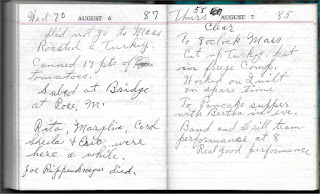 Wed 70 AUGUST 6 87
Did not go to Mass
Roasted a Turkey.
Canned 17 pts of
tomatoes.
Subed at Bridge
at Rose, M.
Rita, Marylin, Carol
Sheila & Eric were
here a while.
Joe died.
Thurs 58 AUGUST 7 85
Clear
To 8 oclock Mass
Cut up Turkey, put
in Comp.
Worked on Quilt
in spare time
To Pancake supper
with Bertha
Band and Drill team
performance at 8
Real good performance